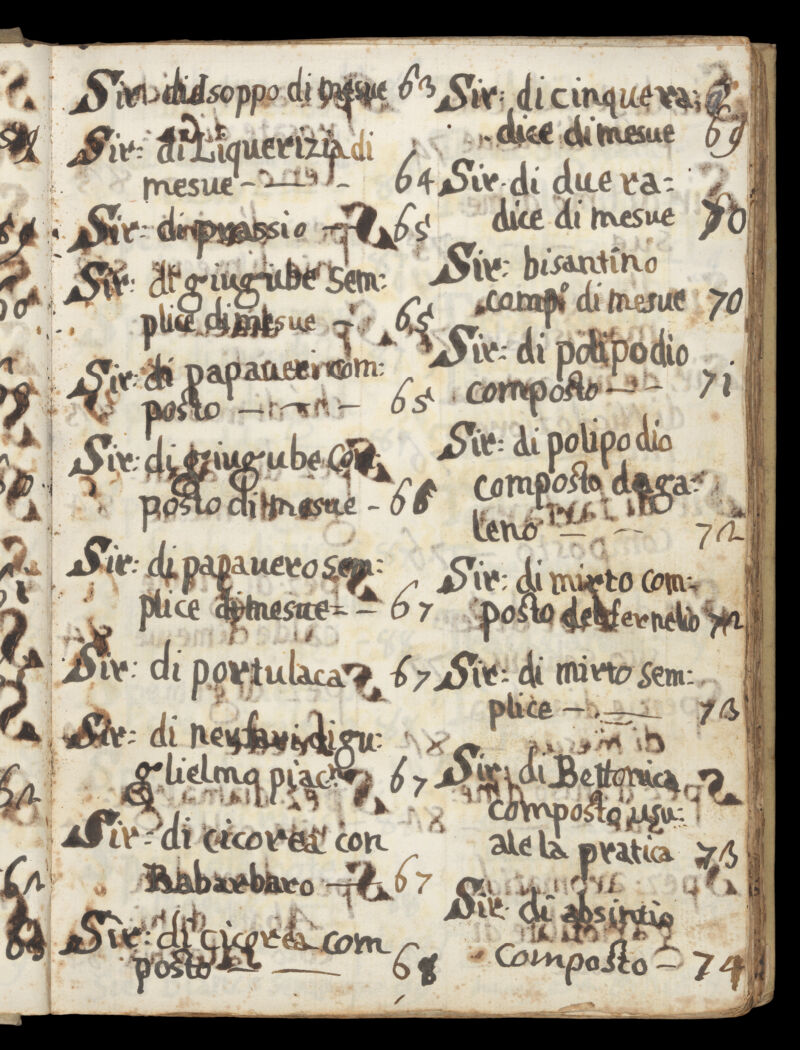 Sir: d'Isoppo di mesue 63
Sir: di Liquerizia di
mesue - — - 64
Sir: di prassio — 65
Sir: di giugiube sem:
plice di mesue - 65
Sir: di papaueri com:
posto — 65
Sir: di giugube com:
posto di mesue - 66
Sir: di papauero sem:
plice di mesue = - 67
Sir: di portulaca 67
Sir: di nenfari di gu:
glielmo piac: 67
Sir: di cicorea con
Rabarbaro — 67
Sir: di cicorea com
posto — — 68
Sir: di cinque ra:
dice di mesue 69
Sir: di due ra=
dice di mesue 70
Sir: bisantino
comp.º di mesue 70
Sir: di polipodio
composto — 71
Sir: di polipodio
composto da ga:
leno — 72
Sir: di mirto com:
posto del fernelio 72
Sir: di mirto sem:
plice — 73
Sir: di Bettonica
composto usu:
ale la pratica 73
Sir: di absintio
composto — 74